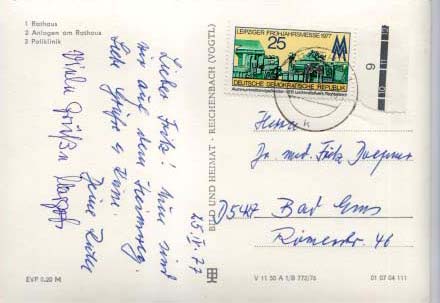 1 Rathaus
2 Anlagen am Rathaus
3 Poliklinik
Lieber Fritz! Nun sind
wir auf dem Heimweg.
Liebe Grüße u. Dank.
Deine
Viele Grüße
25. IV. 77
BILD UND HEIMAT · REICHENBACH (VOGTL)
LEIPZIGER FRÜHJAHRSMESSE 1977
25
DEUTSCHE DEMOKRATISCHE REPUBLIK
9
10
Herrn
Dr. med. Fritz
D 5427 Bad Ems
Römerstr. 46
EVP 0,20 M
V 11 50 A 1/B 772/76
01 07 04 111